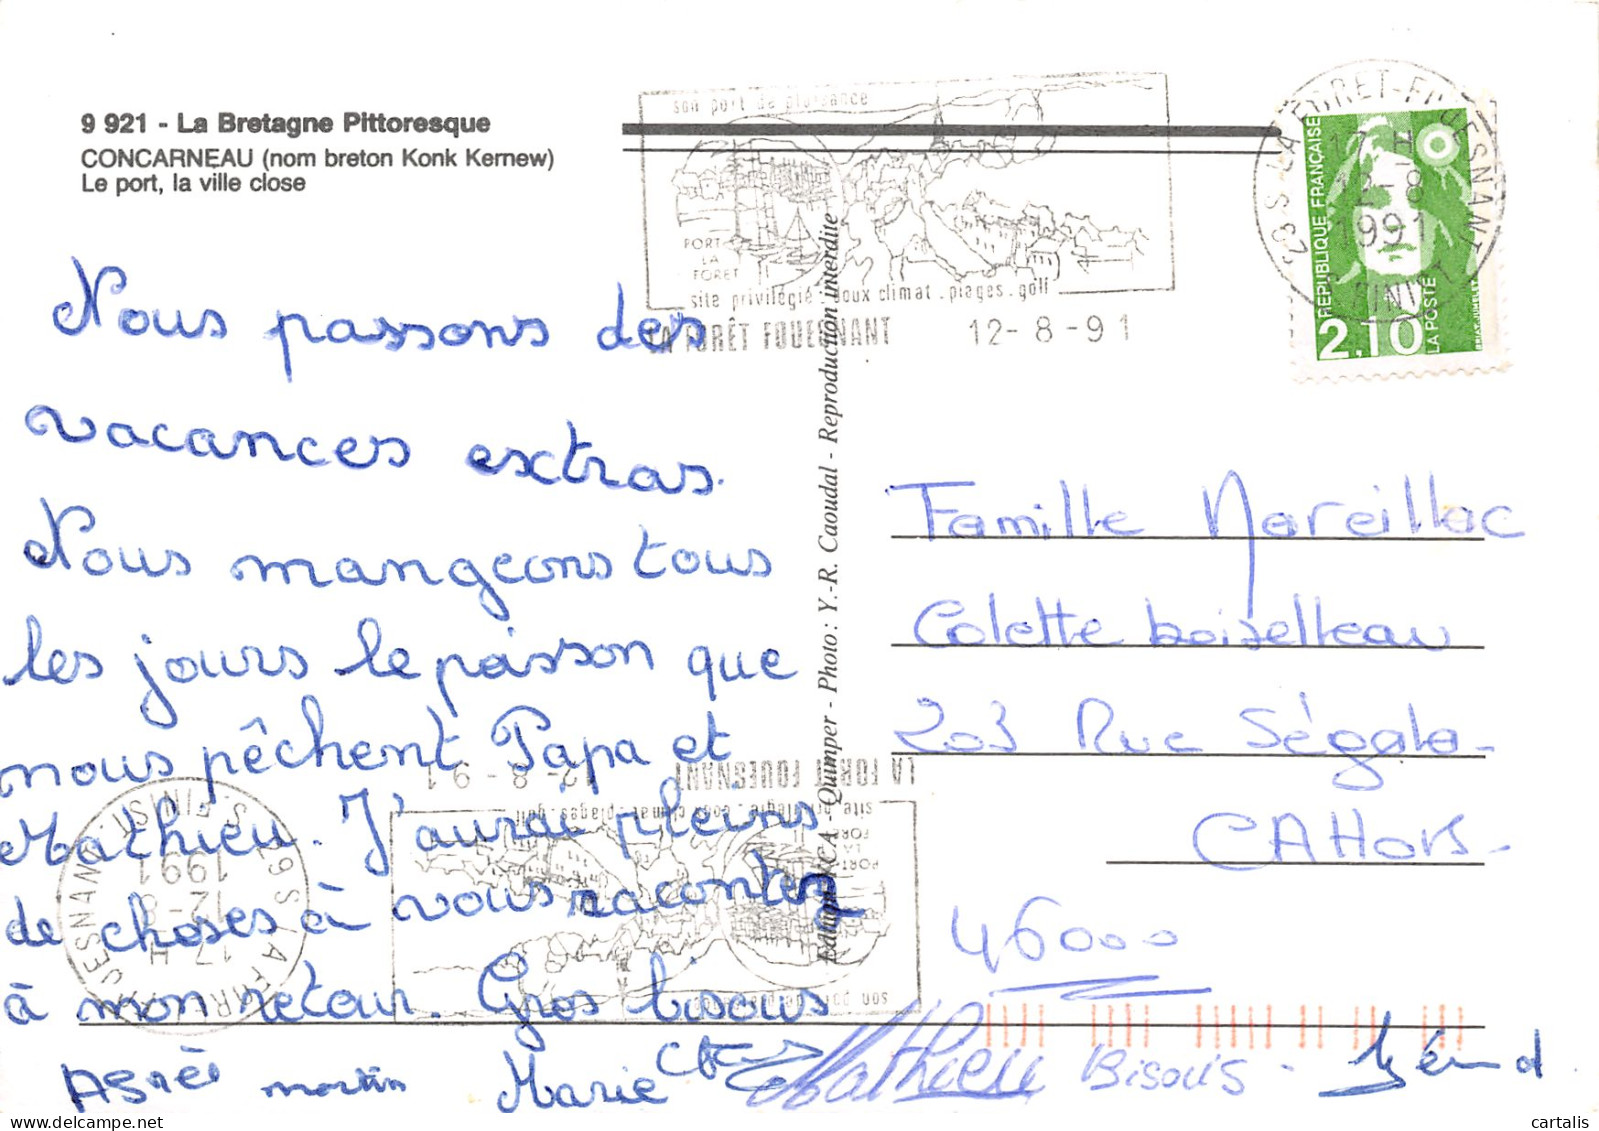 9 921 - La Bretagne Pittoresque
CONCARNEAU (nom breton Konk Kernew)
Le port, la ville close
son port de plaisance
PORT
LA
FORET
site privilégié . doux climat . plages . golf
LA FORÊT FOUESNANT 12-8-91
29 S LA FORET-FOUESNANT
17 H
12-8
1991
FINIST.
REPUBLIQUE FRANÇAISE
LA POSTE
2.10
Nous passons des
vacances extras.
Nous mangeons tous
les jours le poisson que
nous pêchent Papa et
Mathieu. J'aurai pleins
de choses à vous racontez
à mon retour. Gros bisous
Marie
martin
Mathieu Bisous -
Editions JACA - Quimper - Photo : Y.-R. Caoudal - Reproduction interdite
Famille Mareillac
Colette boiselleau
203 Rue Ségala -
CAHORS -
46000
LA FORÊT FOUESNANT 12-8-91
site privilégié . doux climat . plages . golf
PORT
LA
FORET
son port de plaisance
29 S LA FORET-FOUESNANT
17 H
12-8
1991
FINIST.
cartalis